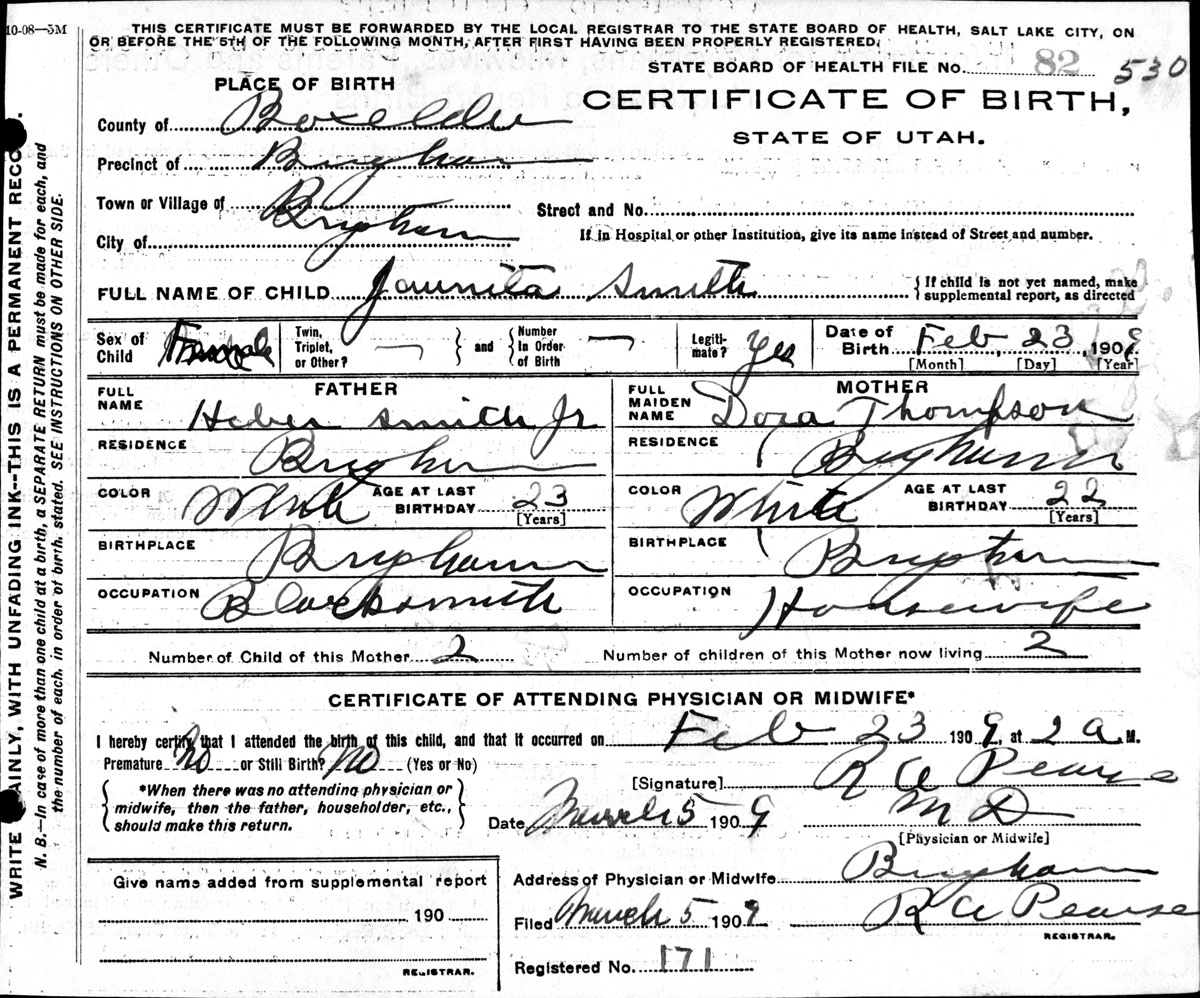 10-08—5M
THIS CERTIFICATE MUST BE FORWARDED BY THE LOCAL REGISTRAR TO THE STATE BOARD OF HEALTH, SALT LAKE CITY, ON
OR BEFORE THE 5TH OF THE FOLLOWING MONTH, AFTER FIRST HAVING BEEN PROPERLY REGISTERED.
STATE BOARD OF HEALTH FILE No. 82 530
PLACE OF BIRTH
CERTIFICATE OF BIRTH,
STATE OF UTAH.
County of Boxelder
Precinct of Brigham
Town or Village of
Street and No.
City of Brigham
If in Hospital or other Institution, give its name instead of Street and number.
FULL NAME OF CHILD Jaunita Smith
{ If child is not yet named, make
supplemental report, as directed
Sex of Child Female
Twin, Triplet, or Other? — } and { Number In Order of Birth —
Legiti-mate? Yes
Date of Birth Feb, 23 1909
[Month] [Day] [Year]
FATHER
FULL NAME Heber Smith Jr
RESIDENCE Brigham
COLOR White AGE AT LAST BIRTHDAY 23 [Years]
BIRTHPLACE Brigham
OCCUPATION Blacksmith
MOTHER
FULL MAIDEN NAME Dora Thompson
RESIDENCE Brigham
COLOR White AGE AT LAST BIRTHDAY 22 [Years]
BIRTHPLACE Brigham
OCCUPATION Housewife
Number of Child of this Mother 2 Number of children of this Mother now living 2
CERTIFICATE OF ATTENDING PHYSICIAN OR MIDWIFE*
I hereby certify that I attended the birth of this child, and that it occurred on Feb 23 1909, at 2 a M.
Premature No or Still Birth? No (Yes or No)
[Signature] R A Pearse
{ *When there was no attending physician or
midwife, then the father, householder, etc.,
should make this return. }
Date March 5 1909 M D
[Physician or Midwife]
Give name added from supplemental report
190
REGISTRAR.
Address of Physician or Midwife Brigham
Filed March 5 1909 R A Pearse
REGISTRAR.
Registered No. 171
N. B.—In case of more than one child at a birth, a SEPARATE RETURN must be made for each, and
the number of each, in order of birth, stated. SEE INSTRUCTIONS ON OTHER SIDE.